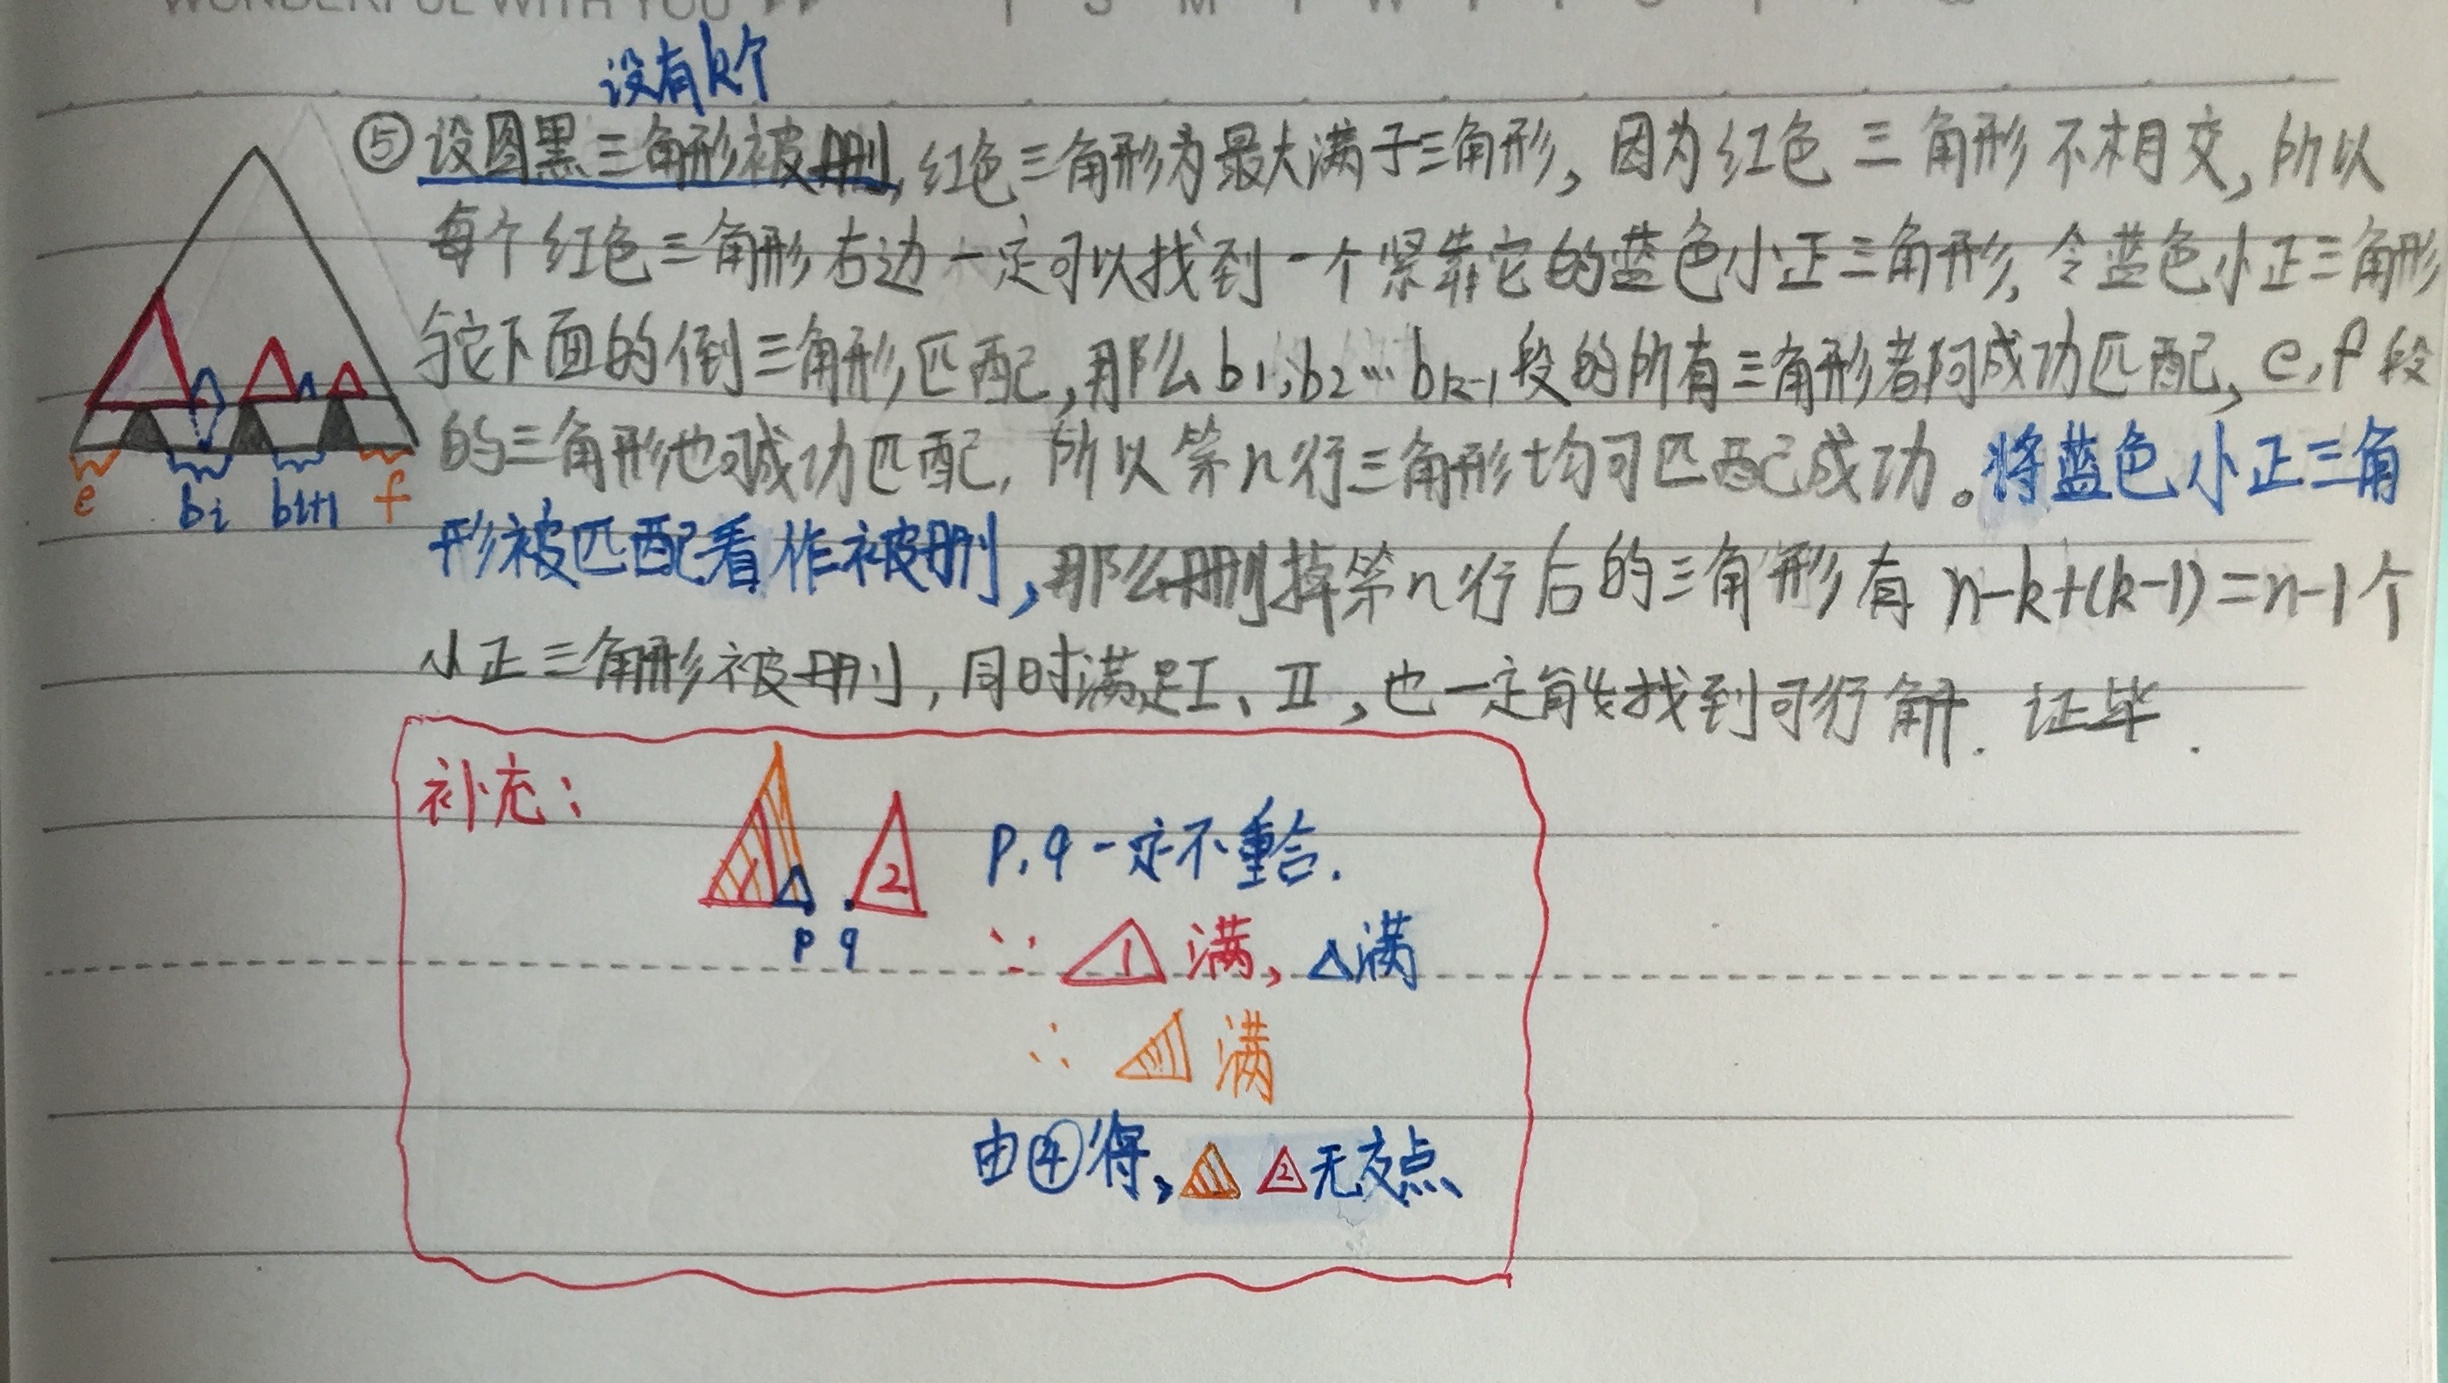 WONDERFUL WITH YOU
设有k个
⑤设图黑三角形被删,红色三角形为最大满子三角形,因为红色三角形不相交,所以
每个红色三角形右边一定可以找到一个紧靠它的蓝色小正三角形,令蓝色小正三角形
与它下面的倒三角形匹配,那么b1,b2…bk-1段的所有三角形都可成功匹配,e,f段
的三角形也可成功匹配,所以第n行三角形均可匹配成功。将蓝色小正三角
形被匹配看作被删,那么删掉第n行后的三角形有n-k+(k-1)=n-1个
小正三角形被删,同时满足I、II,也一定能找到可行解.证毕.
e bi bi+1 f
补充:
1 2
p q
p,q一定不重合.
∵ △1满,△满
∴ △满
由④得,△ △2无交点